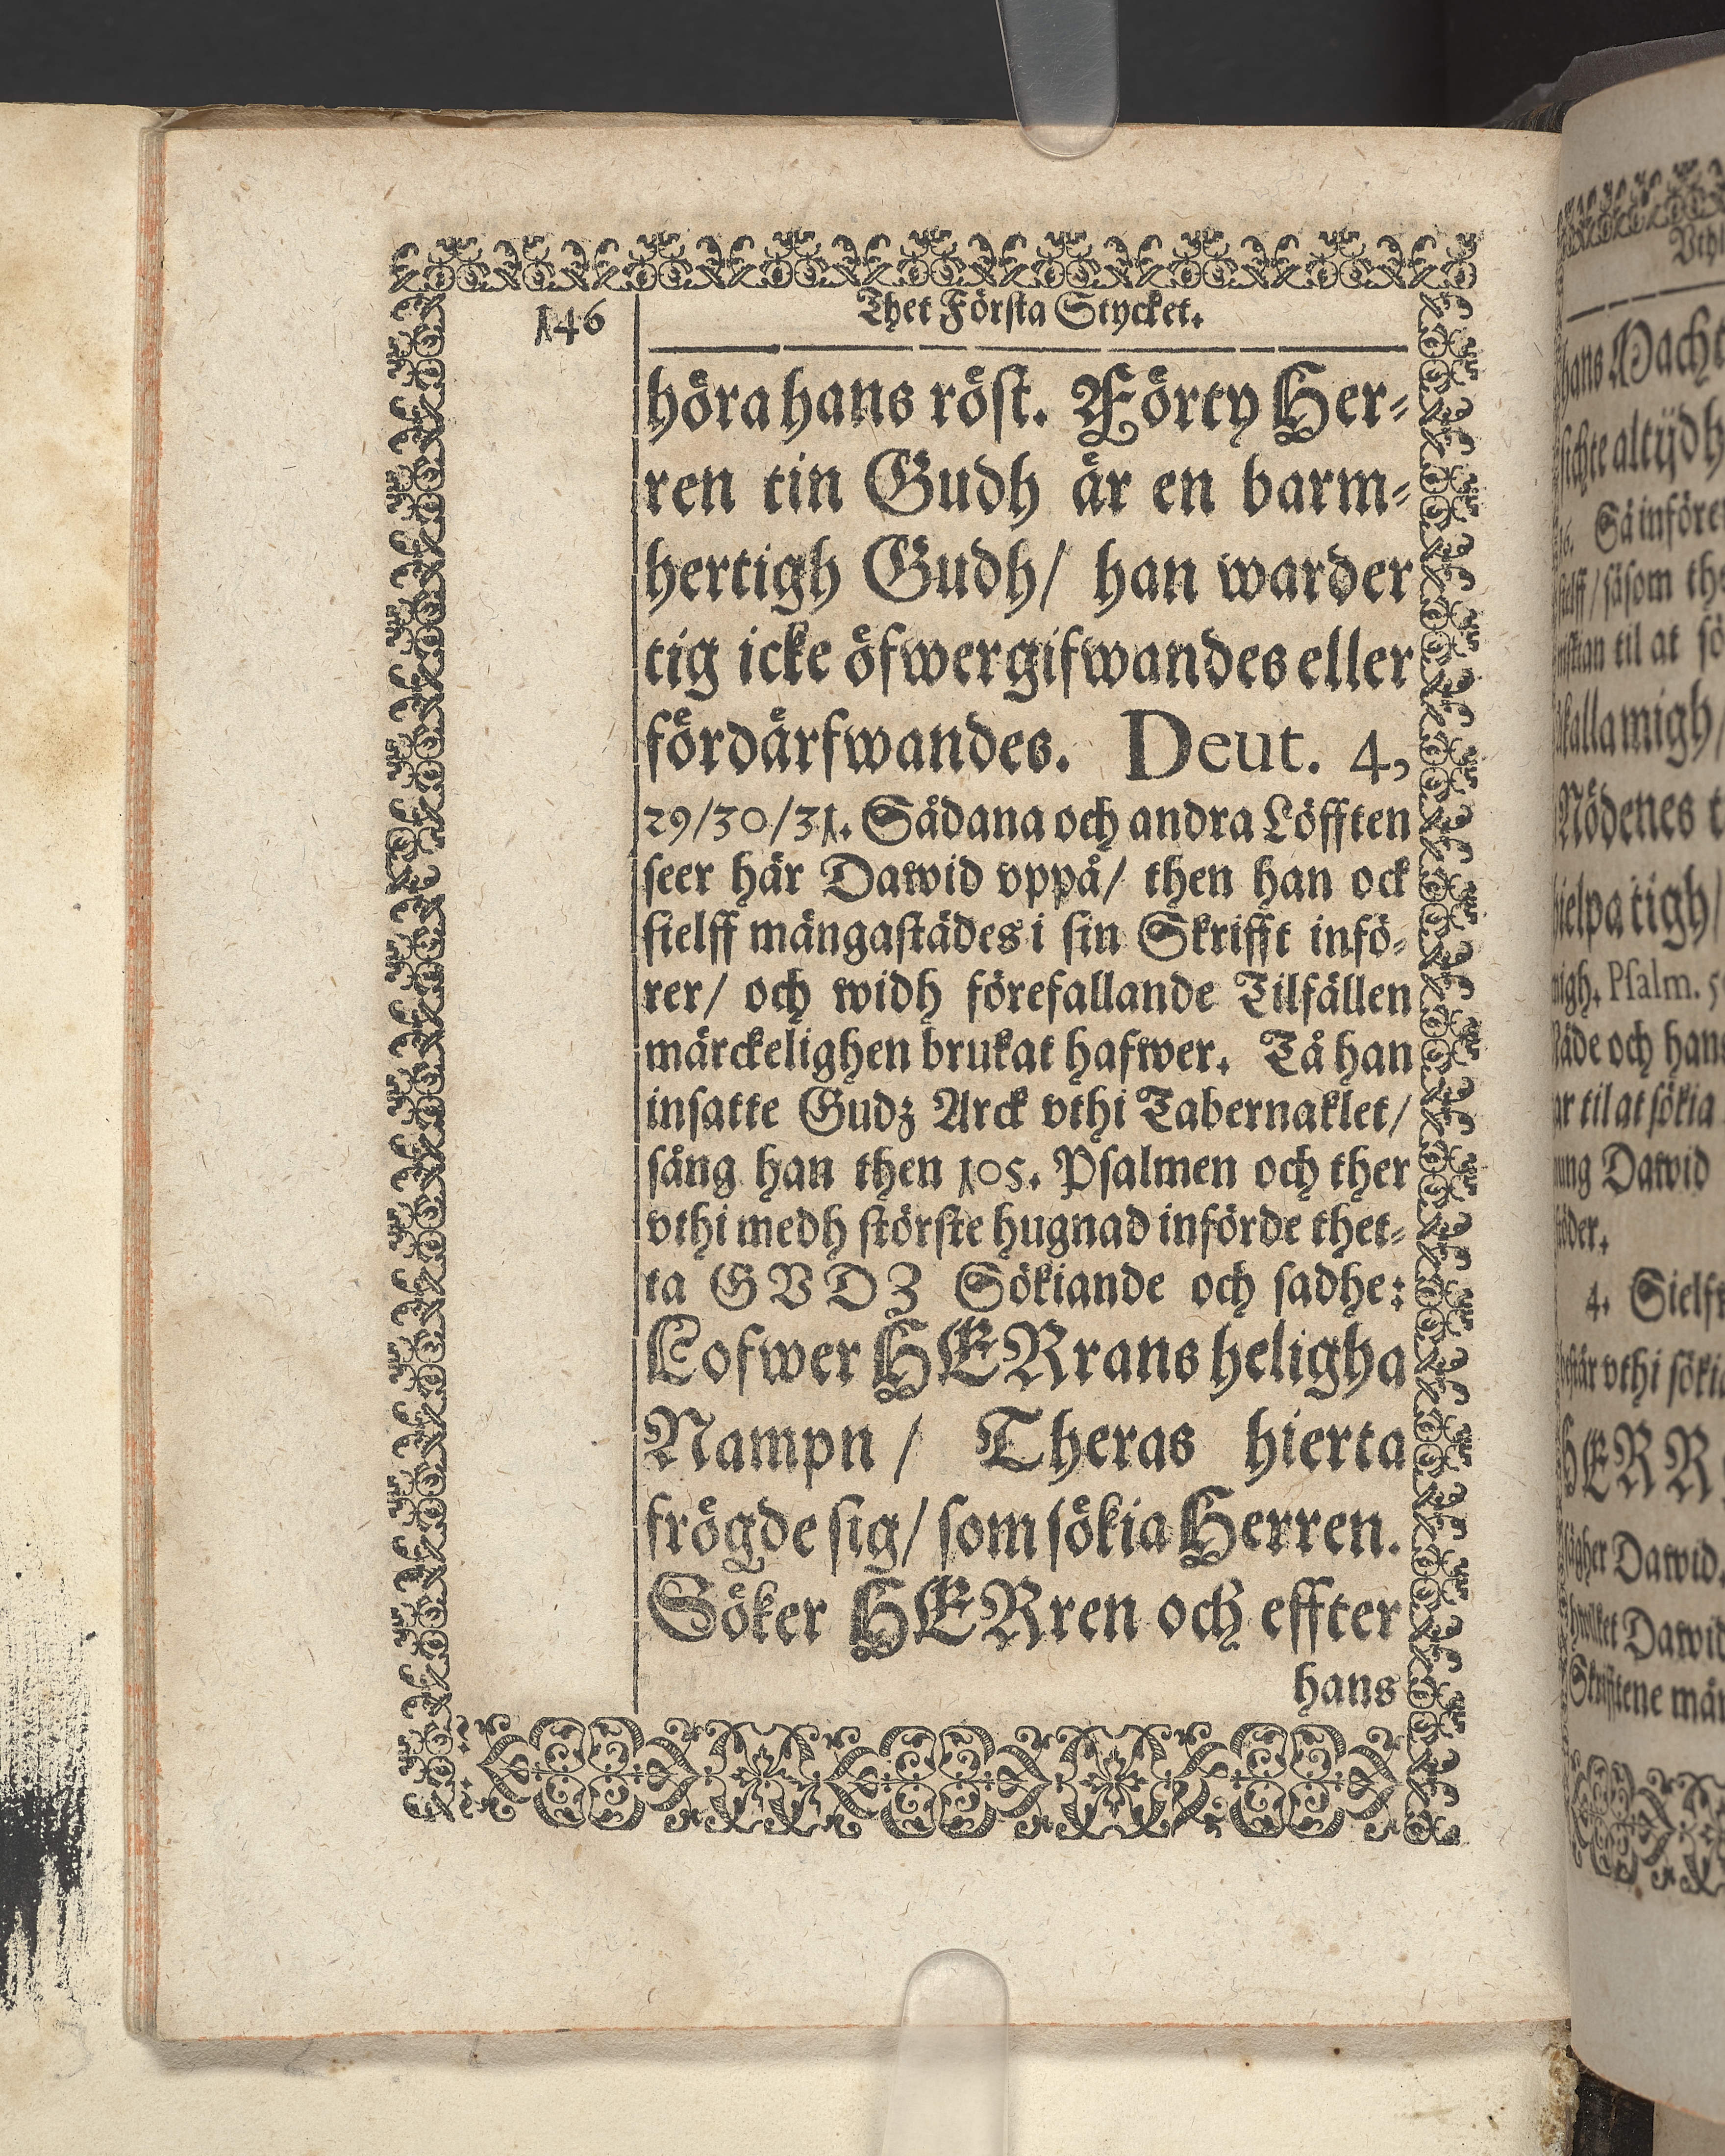 146
Thet Första Stycket.
höra hans röst. Förty Her-
ren tin Gudh är en barm-
hertigh Gudh/ han warder
tig icke öfwergifwandes eller
fördärfwandes. Deut. 4,
29/30/31. Sådana och andra Löfften
seer här Dawid vppå/ then han ock
sielff mångastädes i sin Skrifft infö-
rer/ och widh förefallande Tilfällen
märckelighen brukat hafwer. Tå han
insatte Gudz Arck vthi Tabernaklet/
sång han then 105. Psalmen och ther
vthi medh störste hugnad införde thet-
ta GVDZ Sökiande och sadhe:
Lofwer HERrans heligha
Nampn/ Theras hierta
frögde sig/ som sökia Herren.
Söker HERren och effter
hans
hans Macht
sichte altijdh
16. Så införe
sielff/ såsom the
til at sö
kalla migh/
Nödenes t
hielpa tigh/
migh. Psalm. 5
Nåde och hans
ar til at sökia
ung Dawid
söder.
4. Sielf
står vthi söki
HERR
sägher Dawid.
hwilket Dawid
Skrifftene mån